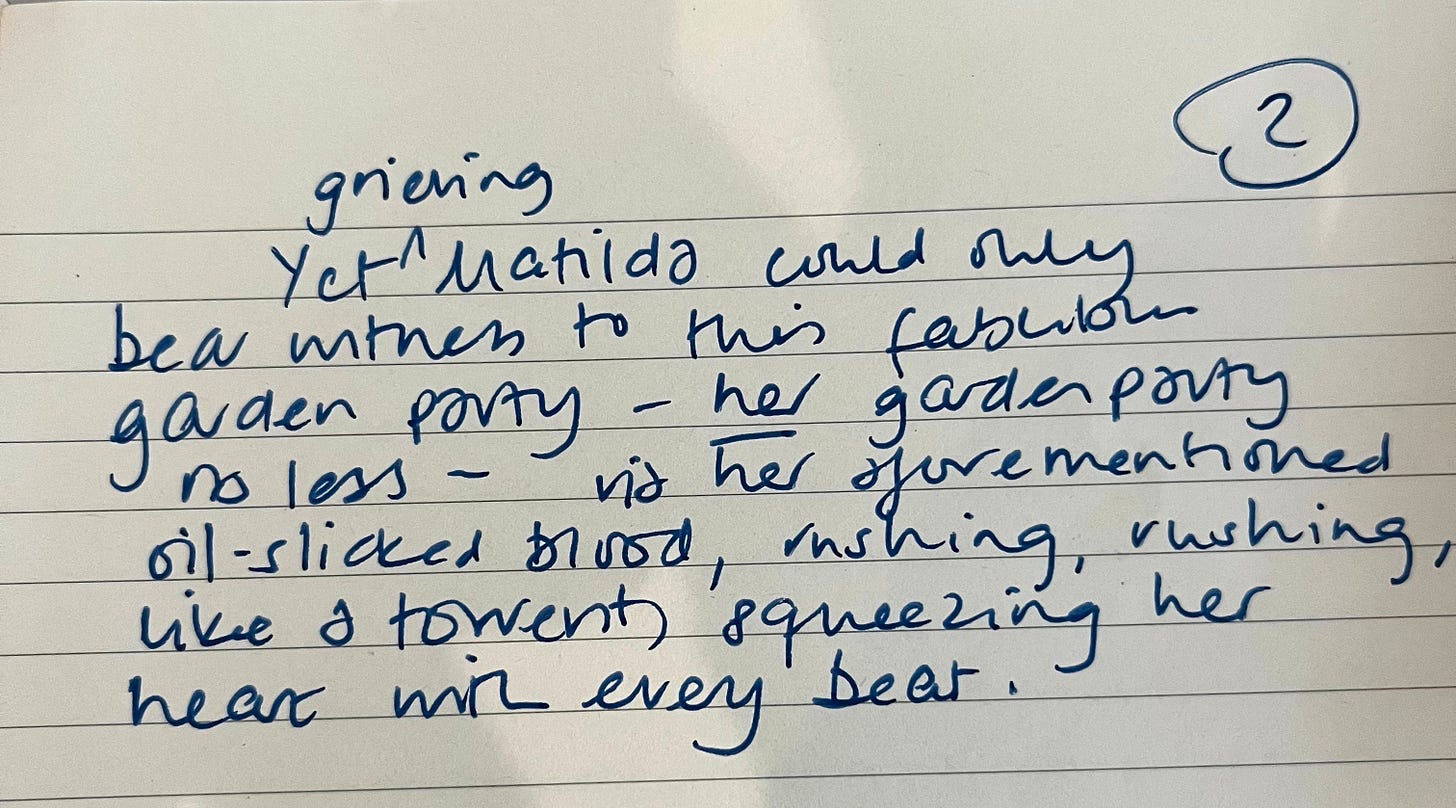 2
grieving
Yet ^ Matilda could only
bear witness to this fabulous
garden party – her garden party
no less – via her aforementioned
oil-slicked blood, rushing, rushing,
like a torrent, squeezing her
heart with every beat.